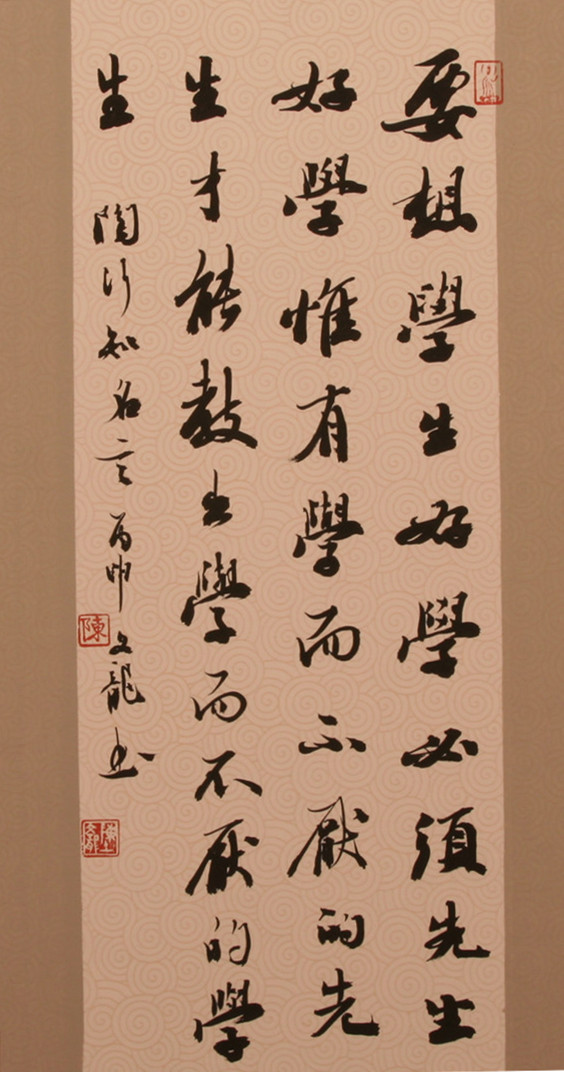 要想學生好學必須先生
好學惟有學而不厭的先
生才能教出學而不厭的學
生
陶行知名言 丙申 文龍書
陳